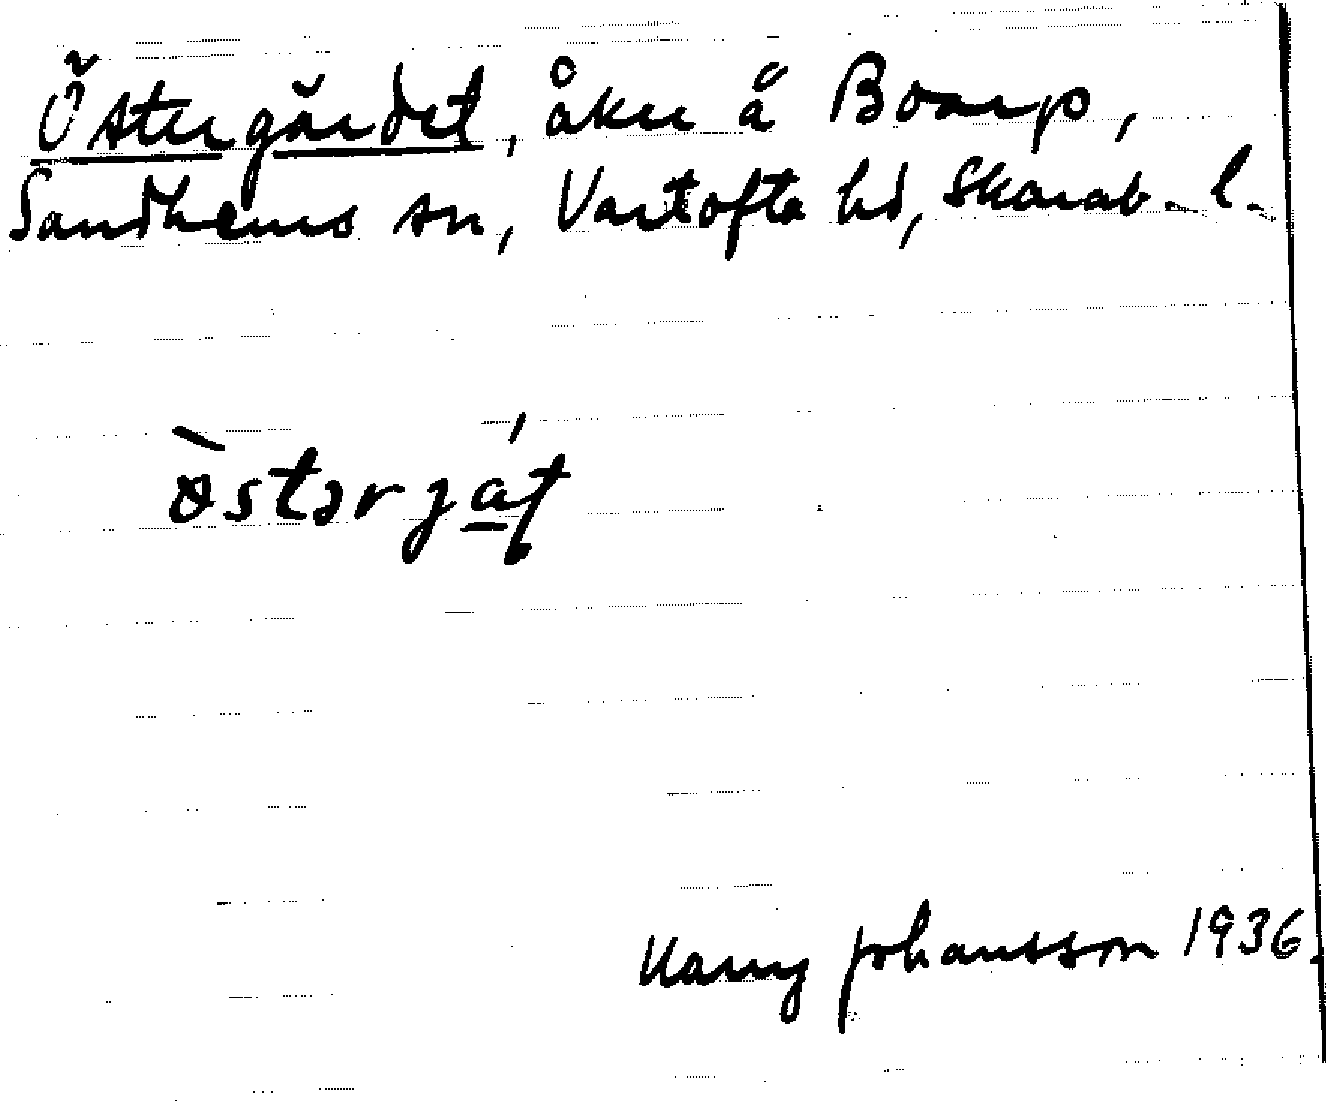 Östergärdet, åker å Boarp,
Sandhems sn, Vartofta hd, Skarab. l.
östərjat
Harry Johansson 1936.